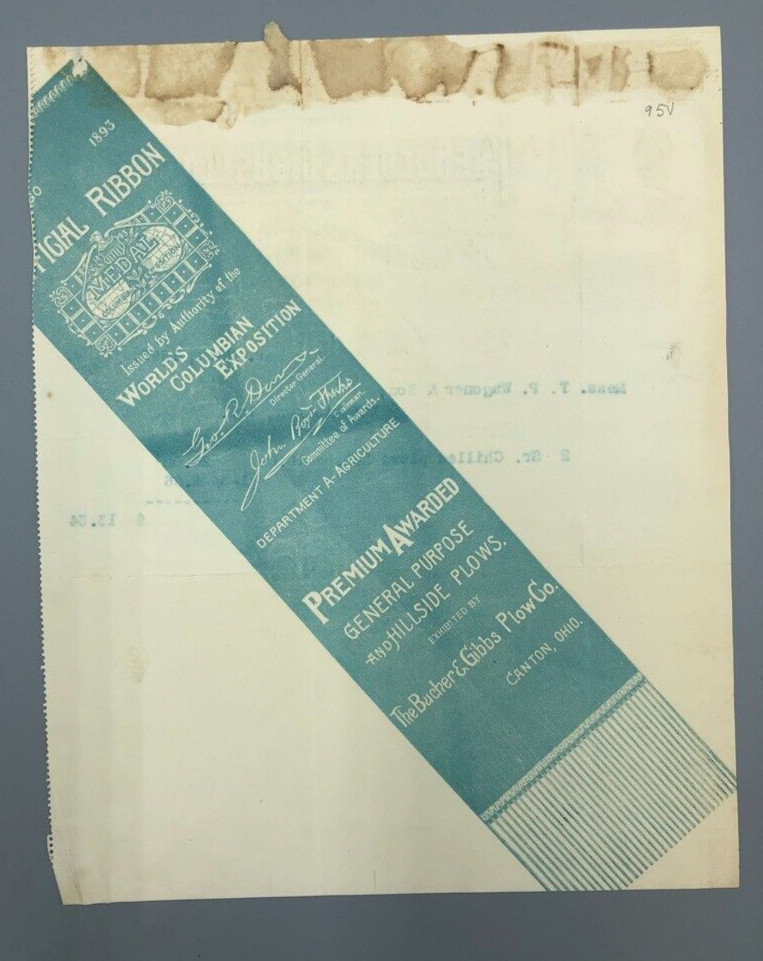 95V
1893
RIBBON
MEDAL
Issued by Authority of the
WORLD'S
COLUMBIAN
EXPOSITION
Geo R. Davis
Director General.
John Boyd Thacher
Chairman.
Committee of Awards.
DEPARTMENT A-AGRICULTURE
PREMIUM AWARDED
GENERAL PURPOSE
AND HILLSIDE PLOWS.
EXHIBITED BY
The Bucher & Gibbs Plow Co.
CANTON, OHIO.
Mess. T. P. Wagoner & Son
2 Sr. Chilled plows
$ 13.34